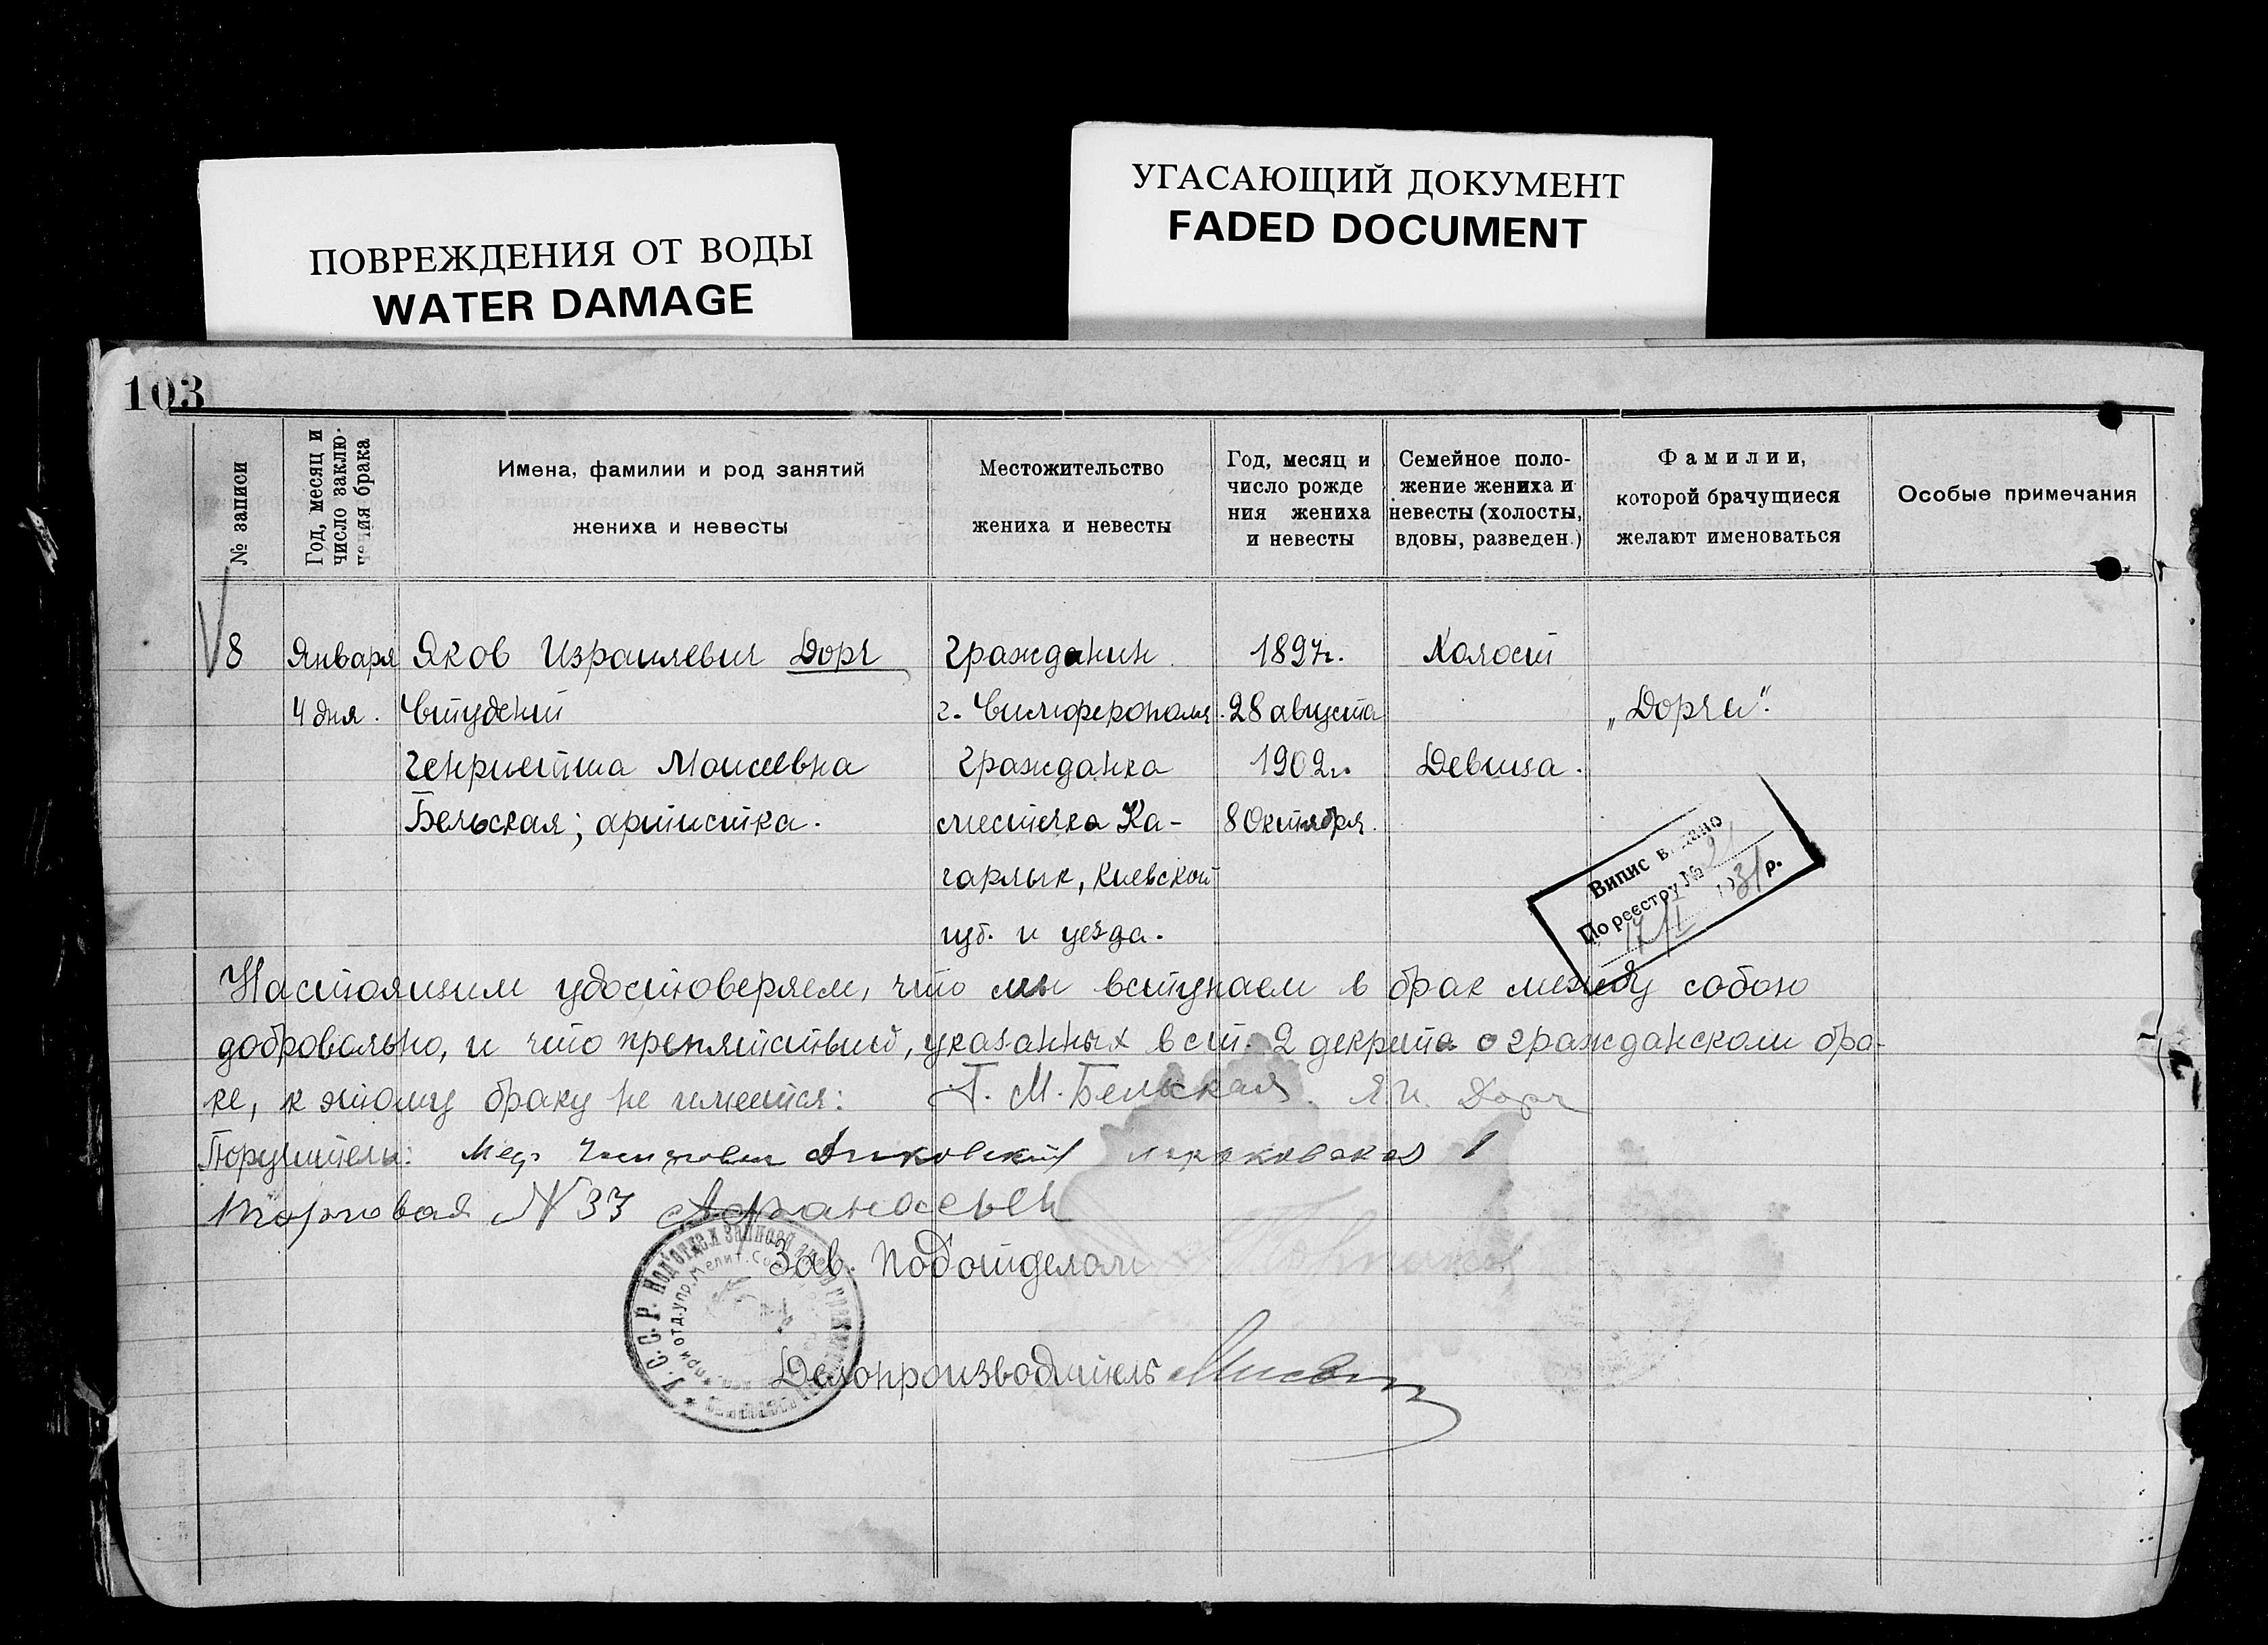 УГАСАЮЩИЙ ДОКУМЕНТ
FADED DOCUMENT
ПОВРЕЖДЕНИЯ ОТ ВОДЫ
WATER DAMAGE
103
№ записи
Год, месяц и
число заклю-
чения брака
Имена, фамилии и род занятий
жениха и невесты
Местожительство
жениха и невесты
Год, месяц и
число рожде
ния жениха
и невесты
Семейное поло-
жение жениха и
невесты (холосты,
вдовы, разведен.)
Фамилии,
которой брачущиеся
желают именоваться
Особые примечания
8 Января Яков Израилевич Дорч Гражданин 1897г. Холост
4 дня. Студент г. Симферополя. 28 августа „Дорчи".
Генриетта Моисеевна Гражданка 1902г. Девица.
Бельская; артистка. местечка Ка- 8 Октября.
гарлык, Киевской
губ. и уезда.
Випис видано
По реєстру №
17/II 1931 р.
Настоящим удостоверяем, что мы вступаем в брак между собою
добровольно, и что препятствий, указанных в ст. 2 декрета о гражданском бра-
ке, к этому браку не имеется: Г. М. Бельская. Я. И. Дорч
Поручители:
Торговая № 37
Зав. Подотделом
Делопроизводитель
У. С. С. Р. Подотдел записей
отд. упр. Мелит.